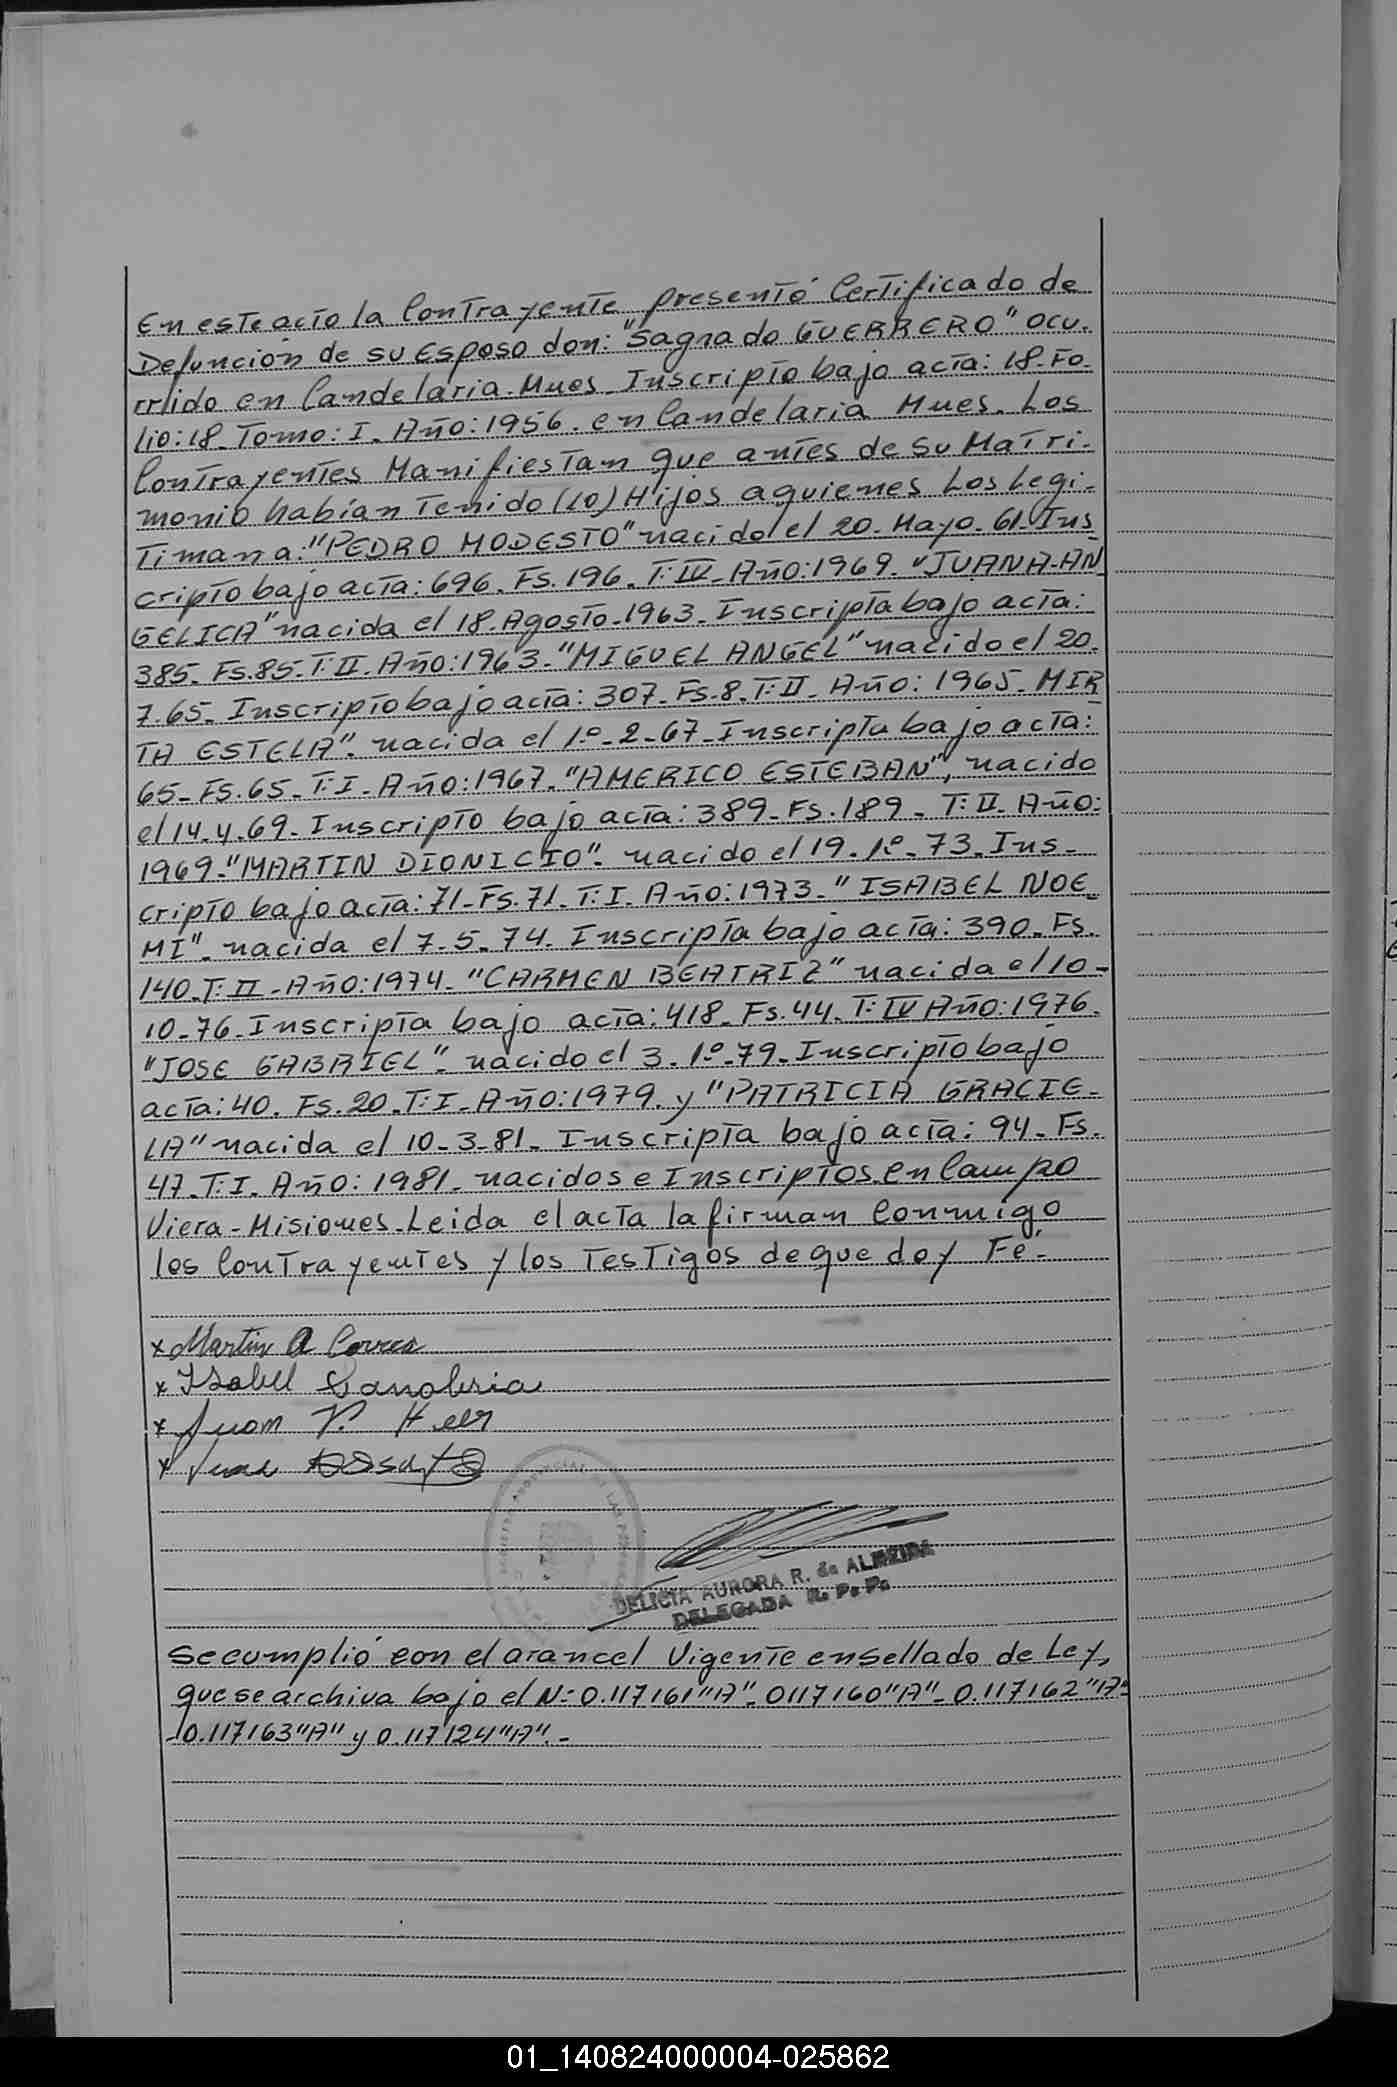 En este acto la Contrayente presentó Certificado de
Defunción de su Esposo don: "Sagrado GUERRERO" ocu.
rrido en Candelaria. Mnes. Inscripto bajo acta: 18. Fo.
lio: 18. Tomo: I. Año: 1956. en Candelaria Mnes. Los
Contrayentes Manifiestan que antes de su Matri-
monio habían Tenido (10) Hijos a quienes Los Legi-
timan a: "PEDRO MODESTO" nacido el 20. Mayo. 61. Ins
cripto bajo acta: 696. Fs. 196. T: IV. Año: 1969. "JUANA-AN
GELICA" nacida el 18. Agosto. 1963. Inscripta bajo acta:
385. Fs. 85. T: II. Año: 1963. "MIGUEL ANGEL" nacido el 20.
7. 65. Inscripto bajo acta: 307. Fs. 8. T: II. Año: 1965. MIR
TA ESTELA". nacida el 1º-2-67. Inscripta bajo acta:
65. Fs. 65. T: I. Año: 1967. "AMERICO ESTEBAN", nacido
el 14. 4. 69. Inscripto bajo acta: 389. Fs. 189. T: II. Año:
1969. "MARTIN DIONICIO". nacido el 19. 1º. 73. Ins-
cripto bajo acta: 71. Fs. 71. T: I. Año: 1973. "ISABEL NOE
MI". nacida el 7. 5. 74. Inscripta bajo acta: 390. Fs.
140. T: II. Año: 1974. "CARMEN BEATRIZ" nacida el 10-
10-76. Inscripta bajo acta: 418. Fs. 44. T: IV Año: 1976.
"JOSE GABRIEL". nacido el 3. 1º. 79. Inscripto bajo
acta: 40. Fs. 20. T: I. Año: 1979. y "PATRICIA GRACIE-
LA" nacida el 10-3-81. Inscripta bajo acta: 94. Fs.
47. T: I. Año: 1981. nacidos e Inscriptos. en Campo
Viera - Misiones. Leida el acta la firman Conmigo
los Contrayentes y los Testigos de que doy Fé.
x Martin A Correa
x Isabel Sanabria
x Juan
x
DELICIA AURORA R. de ALMEIDA
DELEGADA R. P. P.
Se cumplió con el arancel Vigente en sellado de Ley,
que se archiva bajo el Nº 0.117161 "A". 0117160 "A". 0.117162 "A"
-0.117163 "A" y 0.117124 "A". -
01_140824000004-025862